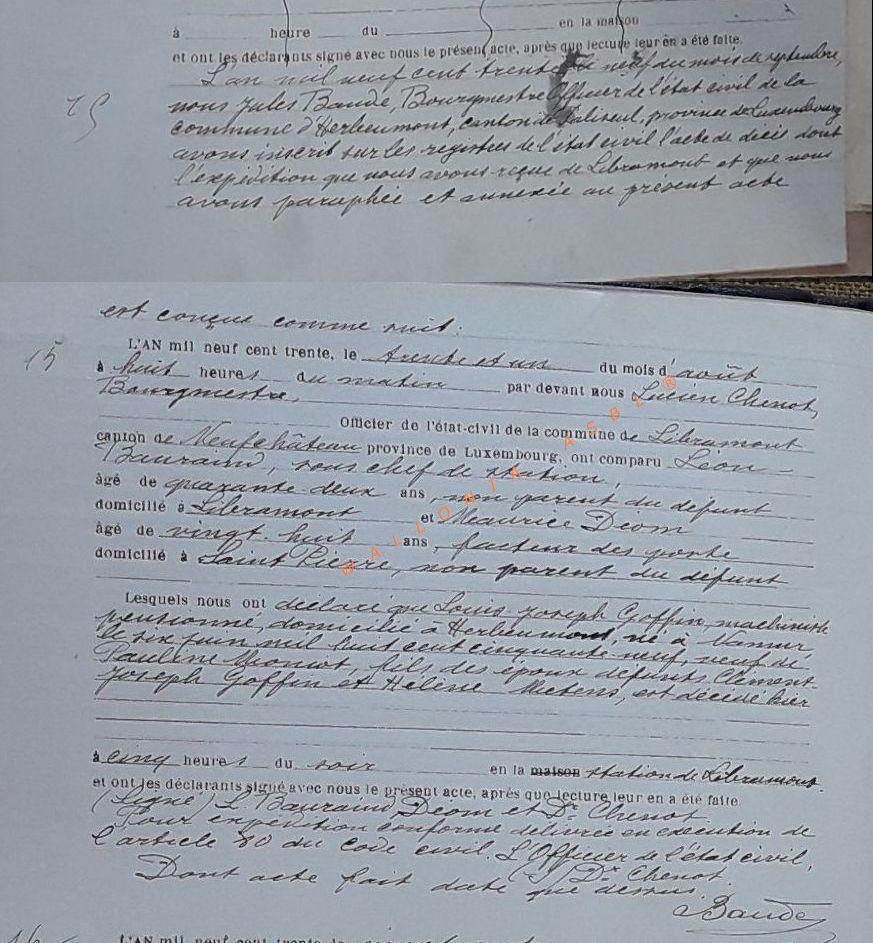 à heure du en la maison
et ont les déclarants signé avec nous le présent acte, après que lecture leur en a été faite.
15
L'an mil neuf cent trente le neuf du mois de septembre,
nous Jules Baude, Bourgmestre Officier de l'état civil de la
commune d'Herbeumont, canton de Paliseul, province de Luxembourg
avons inscrit sur les registres de l'état civil l'acte de décès dont
l'expédition que nous avons reçue de Libramont et que nous
avons paraphée et annexée au présent acte
est conçue comme suit:
15
L'AN mil neuf cent trente, le trente et un du mois d'août
à huit heures du matin par devant nous Lucien Chenot,
Bourgmestre,
Officier de l'état-civil de la commune de Libramont
canton de Neufchâteau province de Luxembourg, ont comparu Léon
Bauraind, sous chef de station,
âgé de quarante-deux ans, non parent du défunt
domicilié à Libramont et Maurice Déom
âgé de vingt-huit ans, facteur des poste
domicilié à Saint Pierre, non parent du défunt
Lesquels nous ont déclaré que Louis-Joseph Goffin, machiniste
pensionné, domicilié à Herbeumont, né à Namur
le six juin mil huit cent cinquante-neuf, veuf de
Pauline fils des époux défunts Clément-
Joseph Goffin et Hélène est décédé hier
à cinq heures du soir en la maison station de Libramont.
et ont les déclarants signé avec nous le présent acte, après que lecture leur en a été faite.
(Signé) L. Bauraind, Déom et Dr Chenot.
Pour expédition conforme délivrée en exécution de
l'article 80 du Code civil. L'Officier de l'état civil,
(s) Dr Chenot.
Dont acte fait date que dessus.
Baude
16
L'AN mil neuf cent trente, le
WALLONIA ASBL ®